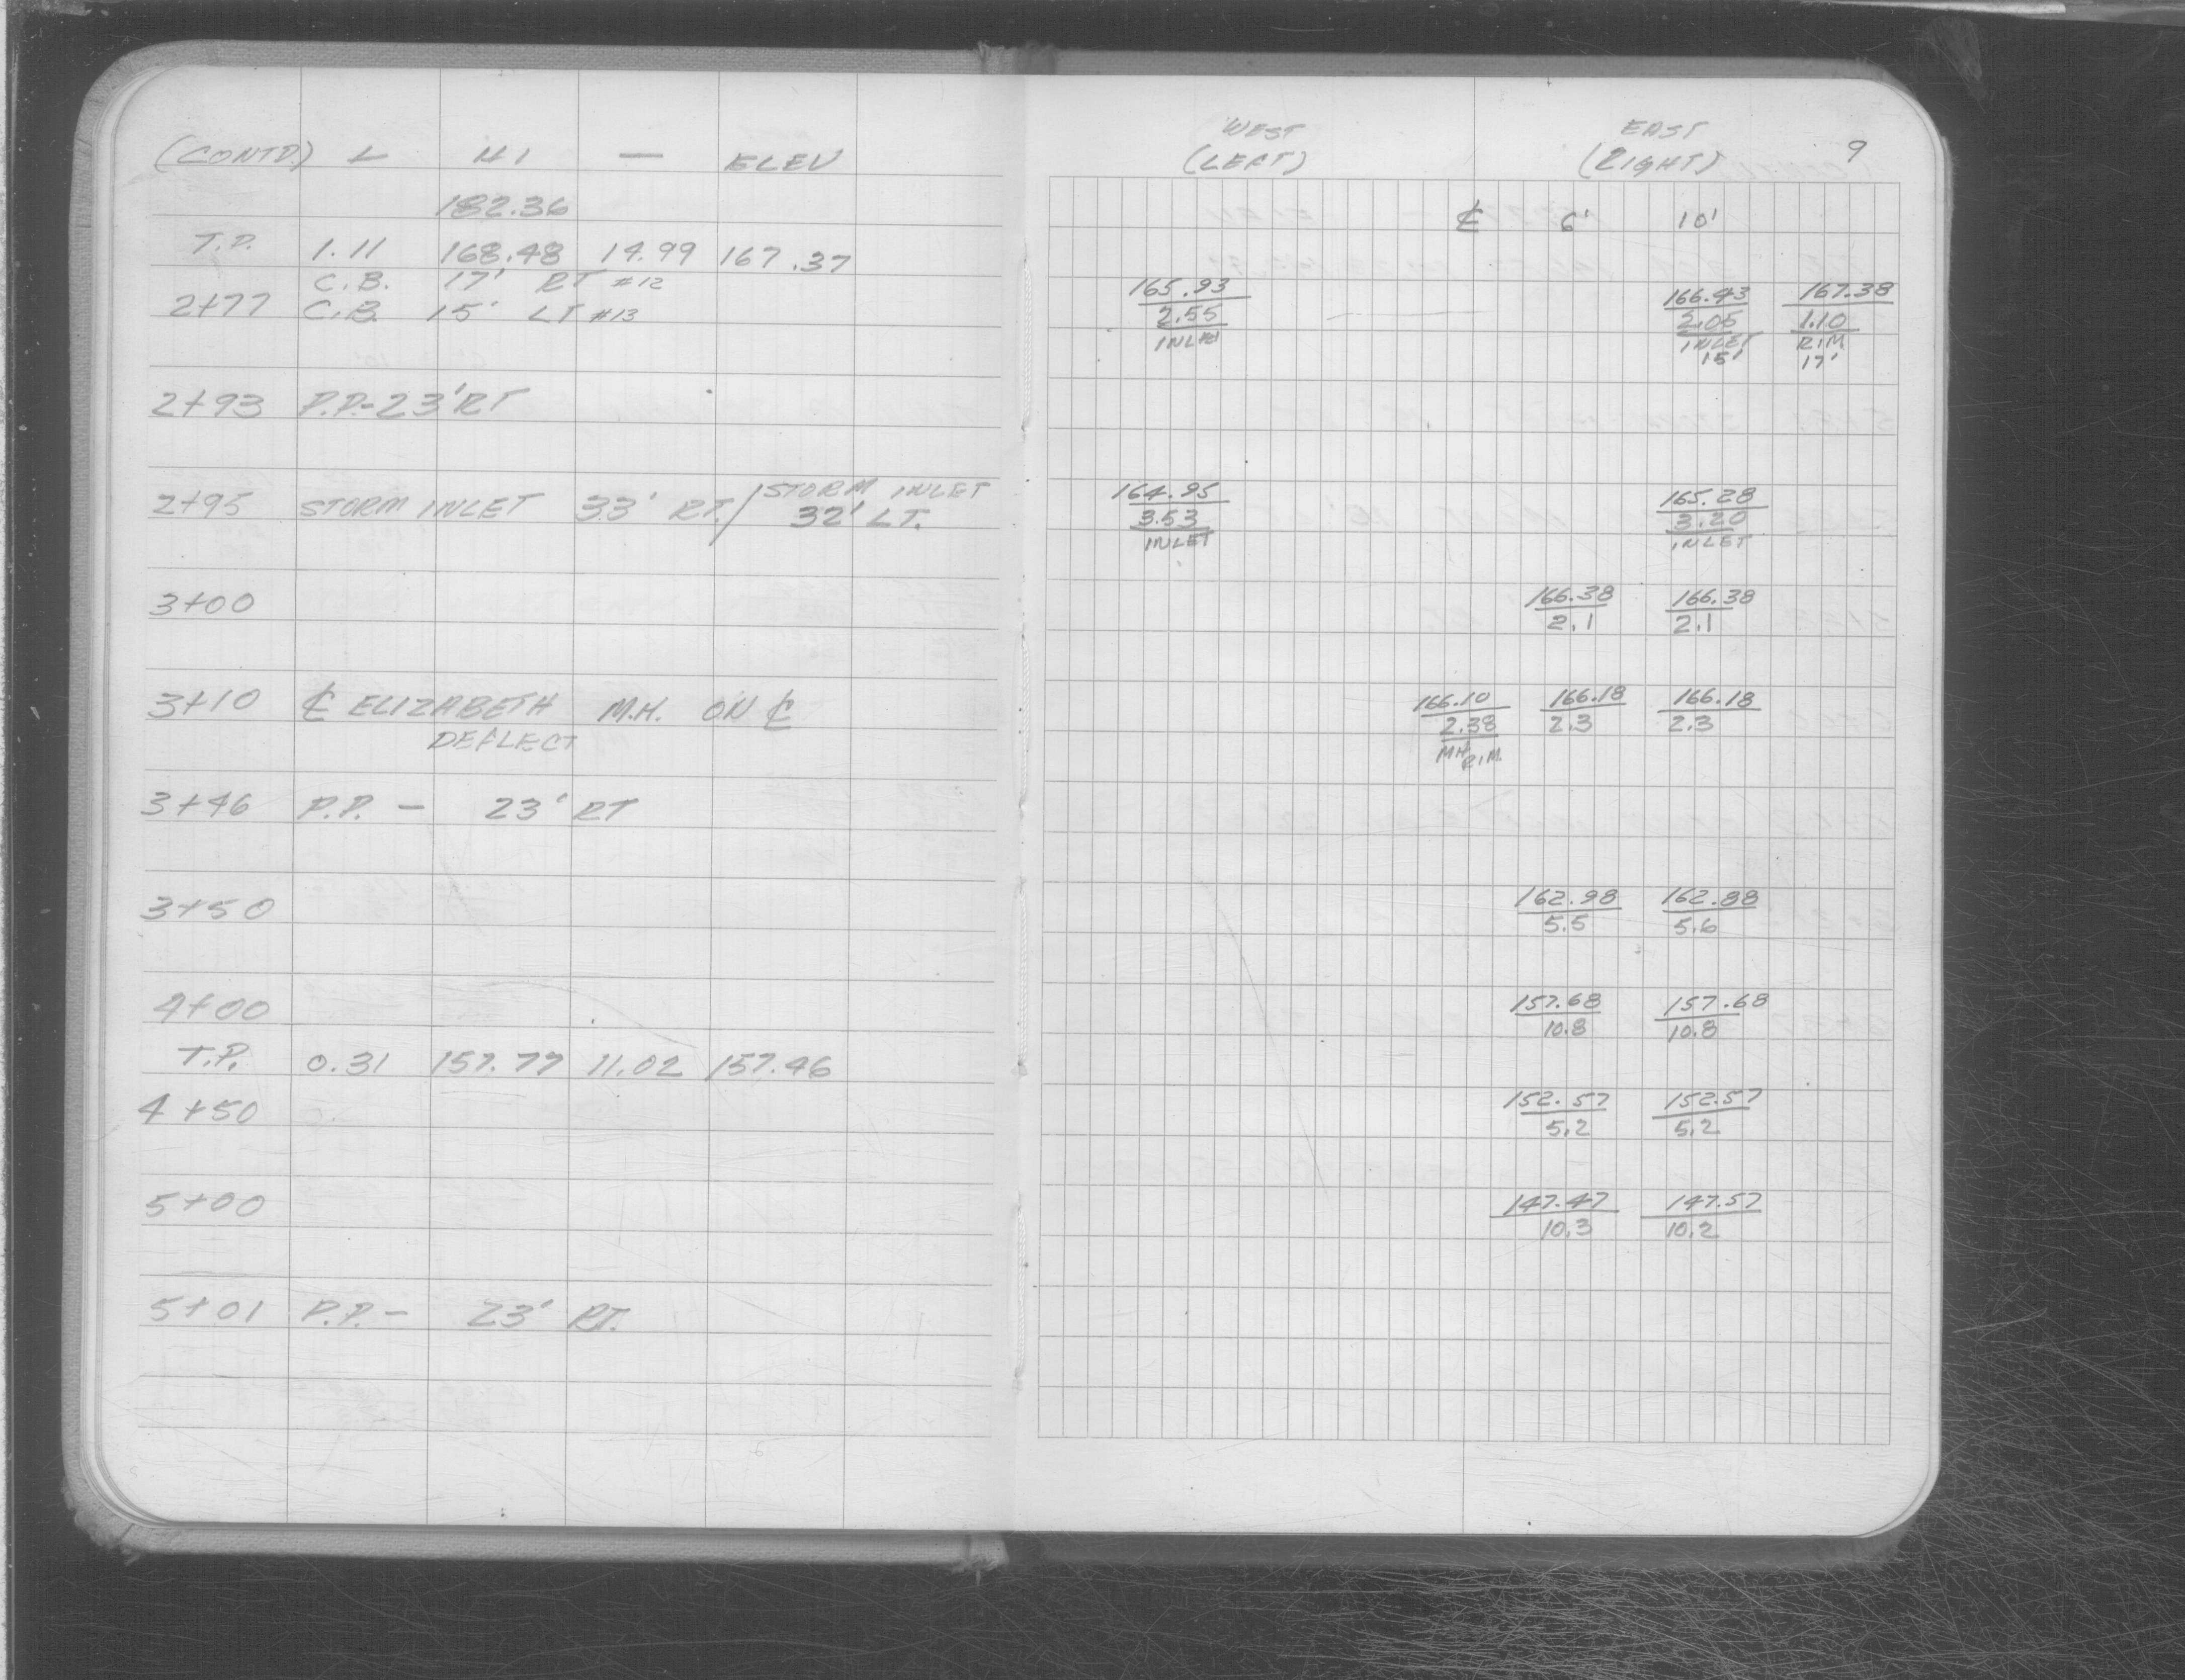 (CONTD.) + HI — ELEV
182.36
T.P. 1.11 168.48 14.99 167.37
C.B. 17' RT #12
2+77 C.B. 15' LT #13
2+93 P.P.-23' RT
2+95 STORM INLET 33' RT. / STORM INLET
32' LT.
3+00
3+10 ℄ ELIZABETH M.H. ON ℄
DEFLECT
3+46 P.P. — 23' RT
3+50
4+00
T.P. 0.31 157.77 11.02 157.46
4+50
5+00
5+01 P.P. — 23' RT.
WEST EAST
(LEFT) (RIGHT) 9
℄ 6' 10'
165.93 166.43 167.38
2.55 2.05 1.10
INLET INLET RIM
15' 17'
164.95 165.28
3.53 3.20
INLET INLET
166.38 166.38
2.1 2.1
166.10 166.18 166.18
2.38 2.3 2.3
MH RIM
162.98 162.88
5.5 5.6
157.68 157.68
10.8 10.8
152.57 152.57
5.2 5.2
147.47 147.57
10.3 10.2